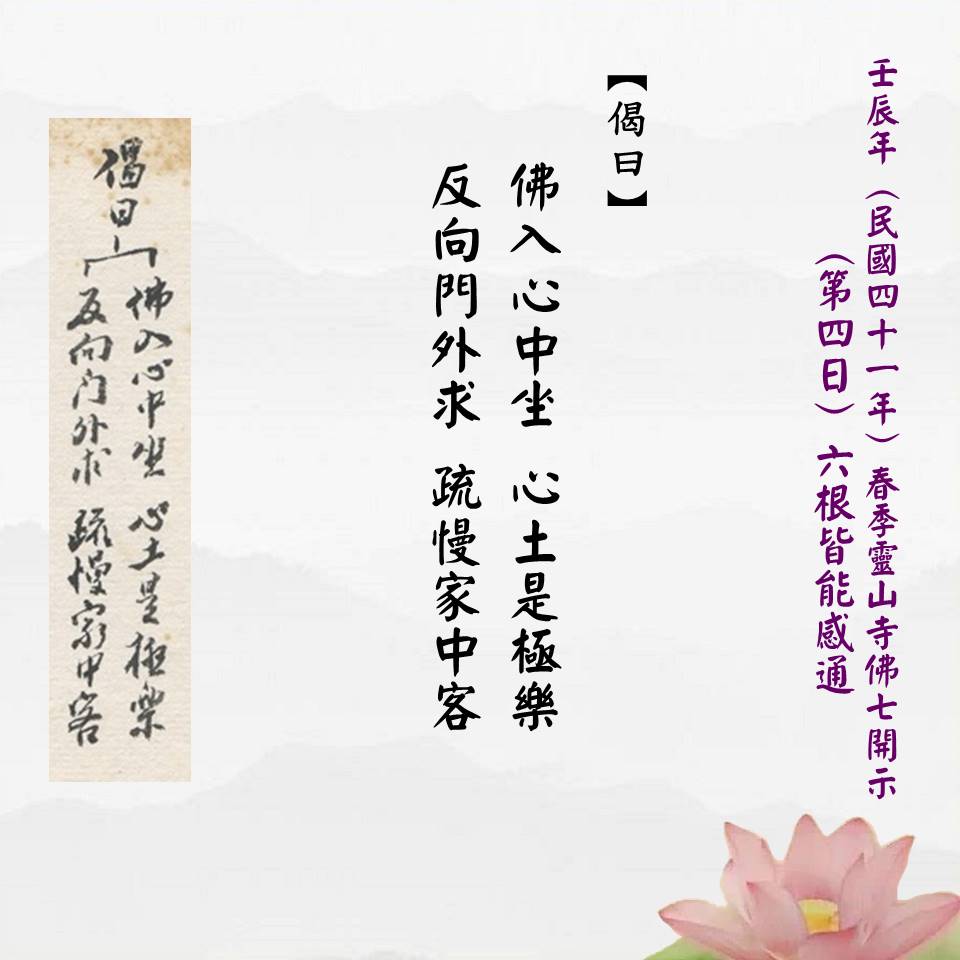 壬辰年（民國四十一年）春季靈山寺佛七開示
（第四日）六根皆能感通
【偈曰】
佛入心中坐 心土是極樂
反向門外求 疏慢家中客
偈曰
佛入心中坐 心土是極樂
反向门外求 疏慢家中客